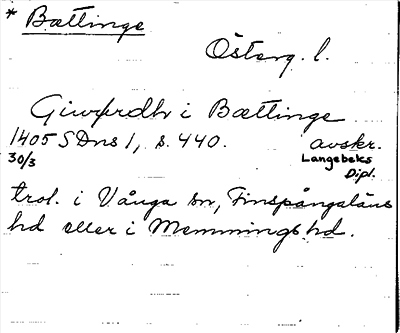 * Bættinge
Österg. l.
Giwrdh i Bættinge
1405 SDns 1, s. 440. avskr.
30/3 Langebeks
Dipl.
trol. i Vånga sn, Finspångaläns
hd eller i Memmings hd.